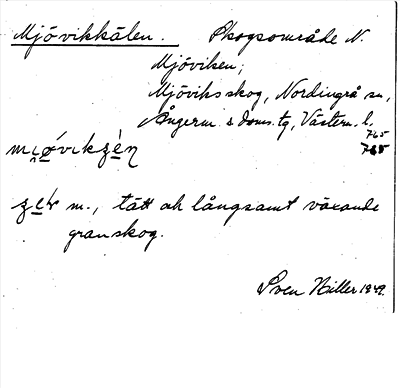 Mjövikkälen. Skogsområde N.
Mjöviken;
Mjöviksskog, Nordingrå sn,
Ångerm. s doms.tg, Västern. l.
765
765
tätt och långsamt växande
granskog.
Sven Hiller 1949.